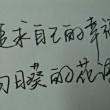 追求自己的幸福
向日葵的花语